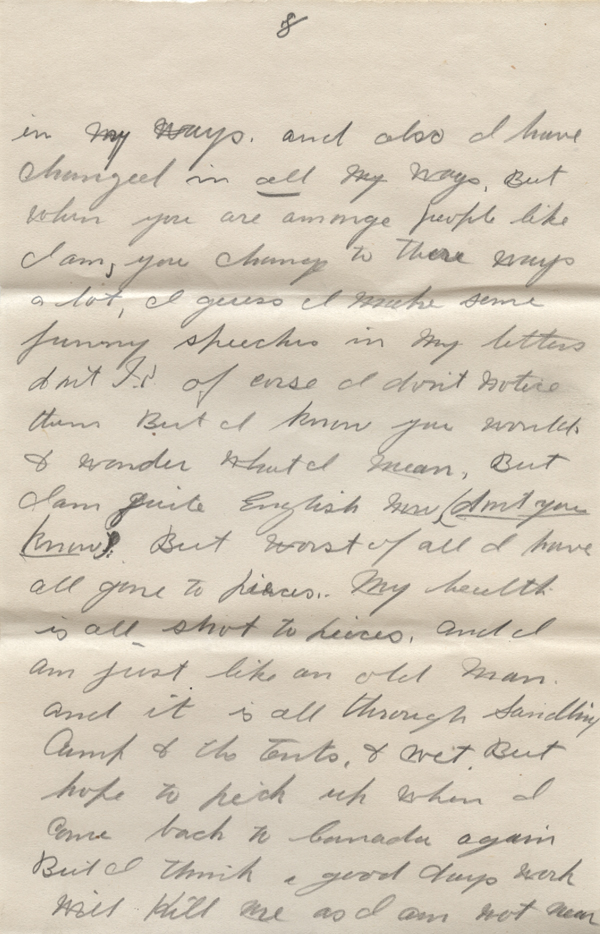 8
in my ways. and also I have
changed in all my ways, But
when you are amonge people like
I am, you change to there ways
a lot, I guess I make some
funny speeches in my letters
dont I. of corse I dont notice
them But I know you would
& wonder what I mean, But
I am quite English now (dont you
know). But worst of all I have
all gone to pieces. My health
is all shot to pieces, and I
am just like an old man.
and it is all through Sandling
Camp & the tents, & wet. But
hope to pick up when I
come back to Canada again
But I think a good days work
will kill me as I am not near